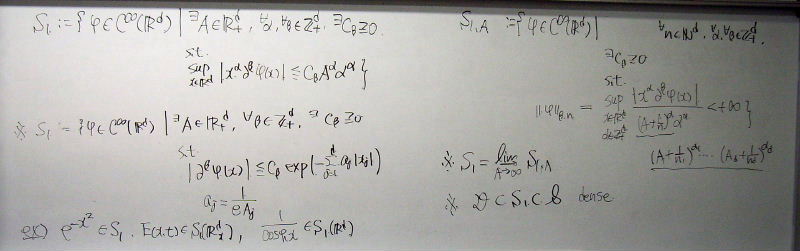 S₁ := { φ ∈ C^∞(ℝ^d) | ∃A ∈ ℝ₊^d, ∀α, ∀β ∈ ℤ₊^d, ∃C_β ≧ 0
s.t.
sup_{x∈ℝ^d} |x^α ∂^β φ(x)| ≦ C_β A^α α^α }
※ S₁ := { φ ∈ C^∞(ℝ^d) | ∃A ∈ ℝ₊^d, ∀β ∈ ℤ₊^d, ∃ C_β ≧ 0
s.t.
|∂^β φ(x)| ≦ C_β exp(-∑_{j=1}^d a_j |x_j|) }
a_j = 1/(eA_j)
ex) e^{-x²} ∈ S₁. E(x,t) ∈ S₁(ℝ_x^d), 1/cosh x ∈ S₁(ℝ^d)
S_{1,A} := { φ ∈ C^∞(ℝ^d) | ∀n ∈ ℕ^d, ∀α, ∀β ∈ ℤ₊^d,
∃C_β ≧ 0
s.t.
‖φ‖_{β,n} = sup_{x∈ℝ^d, α∈ℤ₊^d} |x^α ∂^β φ(x)| / (A+1/n)^α α^α < +∞ }
※ S₁ = lim_{A→∞} S_{1,A}
(A+1/n₁)^{α₁} ⋯ (A_d+1/n_d)^{α_d}
※ 𝒟 ⊂ S₁ ⊂ 𝒮 dense